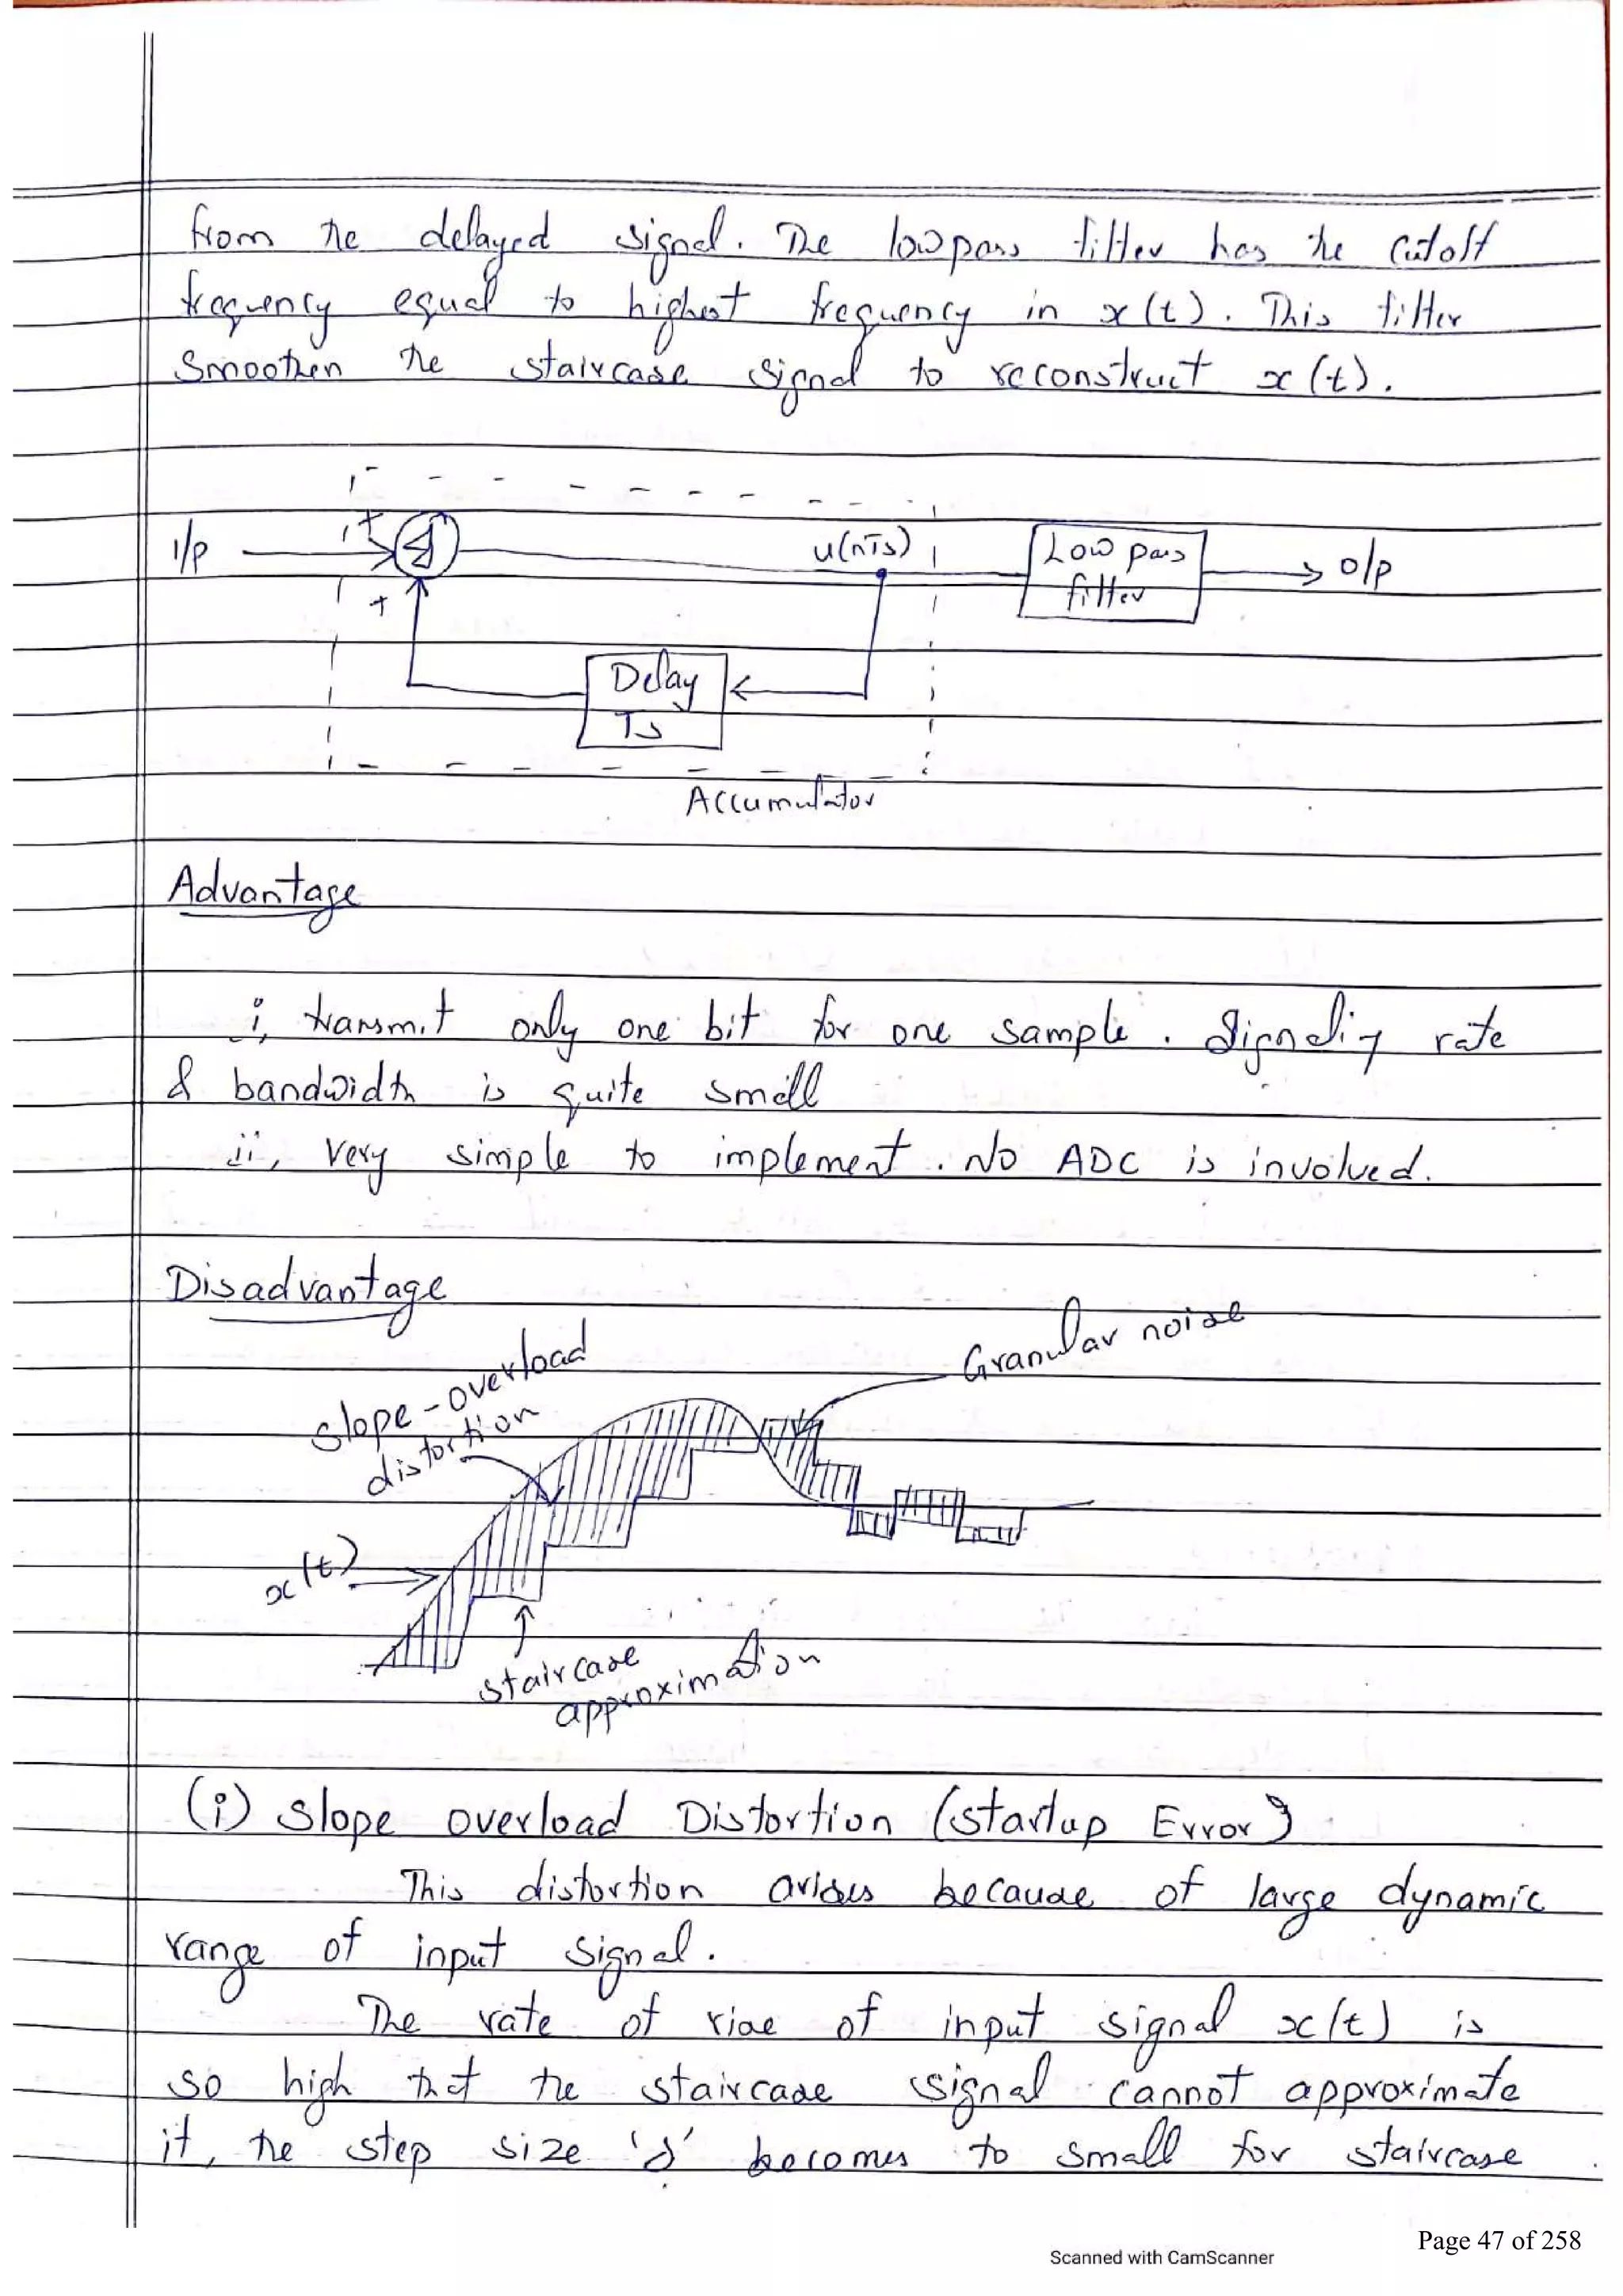 from the delayed signal. The lowpass filter has the cutoff
frequency equal to highest frequency in x(t). This filter
Smoothen the staircase signal to reconstruct x(t).
i/p + Σ u(nTs) Low pass o/p
filter
+
Delay
Ts
Accumulator
Advantage
i, transmit only one bit for one sample. Signaling rate
& bandwidth is quite small
ii, Very simple to implement. No ADC is involved.
Disadvantage
Granular noise
slope-overload
distortion
x(t)
staircase
approximation
(i) Slope overload Distortion (startup Error)
This distortion arises because of large dynamic
range of input signal.
The rate of rise of input signal x(t) is
so high that the staircase signal cannot approximate
it, the step size 'δ' becomes to small for staircase
Page 47 of 258
Scanned with CamScanner